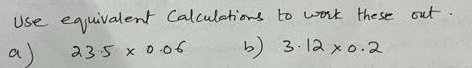 Use equivalent Calculations to work these out.
a) 23.5 x 0.06 b) 3.12 x 0.2